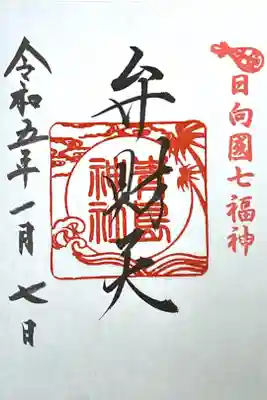 日向國七福神
弁財天
青島神社
令和五年一月七日